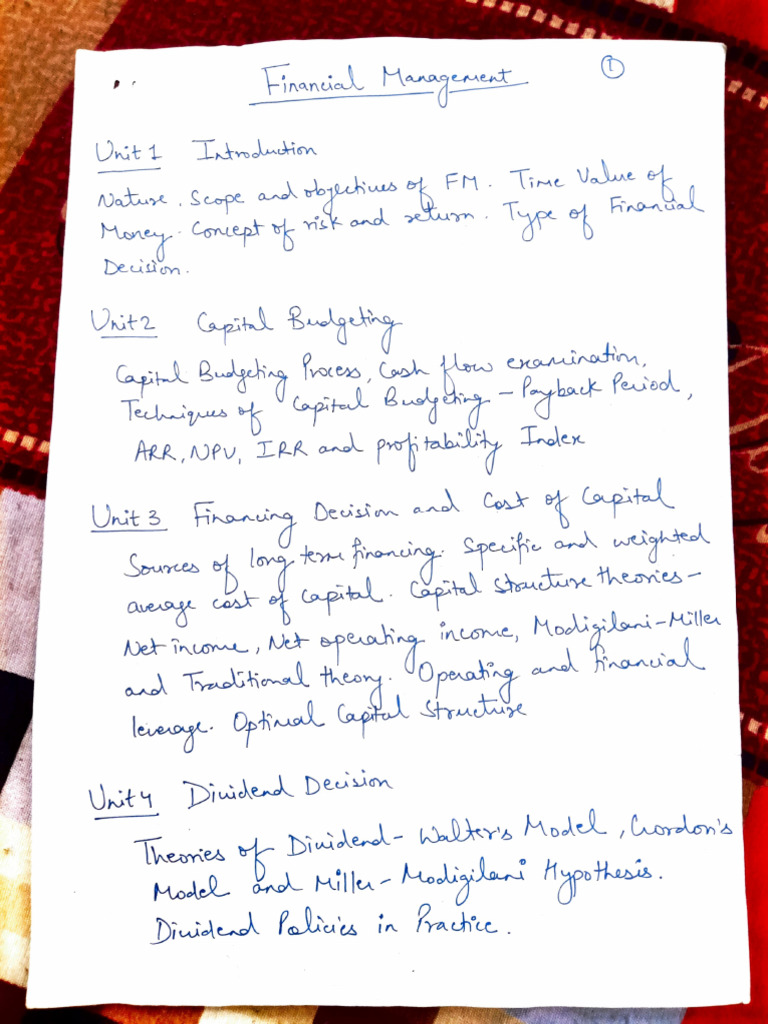 Financial Management
1
Unit 1 Introduction
Nature, Scope and objectives of FM. Time Value of
Money. Concept of risk and return. Type of Financial
Decision.
Unit 2 Capital Budgeting
Capital Budgeting Process, Cash flow examination,
Techniques of Capital Budgeting - Payback Period,
ARR, NPV, IRR and profitability Index
Unit 3 Financing Decision and Cost of Capital
Sources of long term financing. Specific and weighted
average cost of capital. Capital structure theories -
Net income, Net operating income, Modigilani - Miller
and Traditional theory. Operating and financial
leverage. Optimal Capital Structure
Unit 4 Dividend Decision
Theories of Dividend - Walter's Model, Gordon's
Model and Miller - Modigilani Hypothesis.
Dividend Policies in Practice.